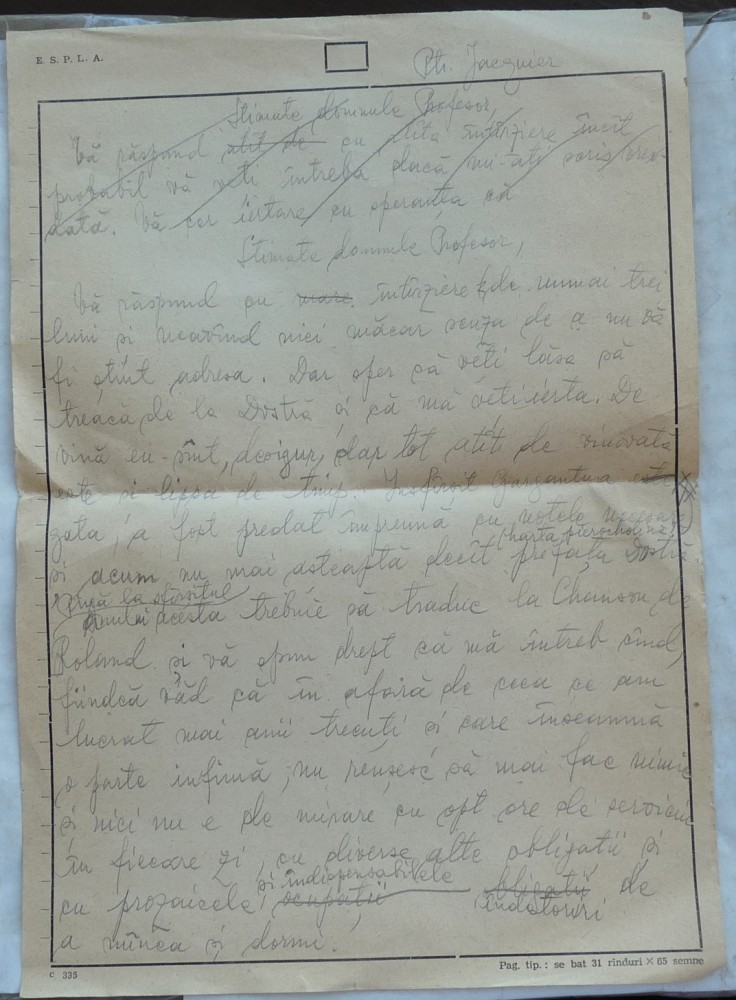 E. S. P. L. A.
Ph. Jacquier
Stimate domnule Profesor,
Vă răspund atît de cu atîta întîrziere încît
probabil vă veți întreba dacă mi-ați scris vreo-
dată. Vă cer iertare cu speranța că
Stimate domnule Profesor,
Vă răspund cu mare întîrziere de numai trei
luni și neavînd nici măcar scuza de a nu vă
fi știut adresa. Dar sper că veți lăsa să
treacă de la Dvstră și că mă veți ierta. De
vină eu sînt, desigur, dar tot atît de vinovată
este și lipsa de timp. Însfîrșit Gargantua este
gata, a fost predat împreună cu notele necesare
și acum nu mai așteaptă decît prefața Dvstră
charta
Pînă la sfîrșitul
anului acesta trebuie să traduc la Chanson de
Roland și vă spun drept că mă întreb cînd,
fiindcă văd că în afară de ceea ce am
lucrat mai anii trecuți și care înseamnă
o parte infimă, nu reușesc să mai fac nimic
și nici nu e de mirare cu opt ore de serviciu
în fiecare zi, cu diverse alte obligații și
și indispensabilele
cu prozaicele ocupații obligații de
îndatoriri
a mînca și dormi.
C 335
Pag. tip.: se bat 31 rînduri × 65 semne